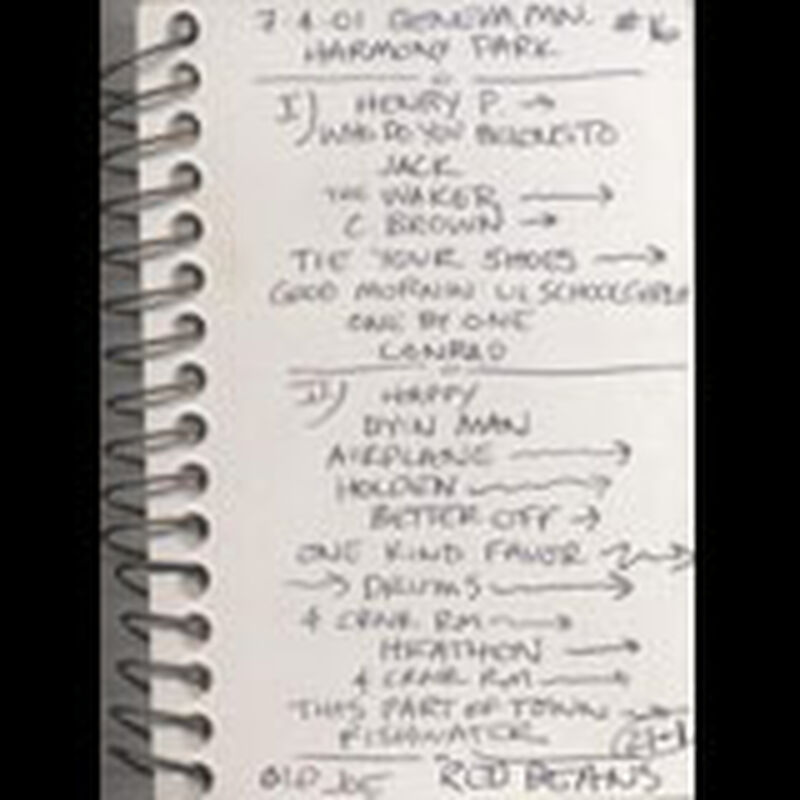 7·4·01 GENEVA, MN. #16
HARMONY PARK
I) HENRY P. →
WHO DO YOU BELONG TO
JACK
THE WAKER →
C BROWN →
TIE YOUR SHOES →
GOOD MORNIN LIL SCHOOLGIRL
ONE BY ONE
CONRAD
II) HAPPY
DYIN MAN
AIRPLANE →
HOLDEN →
BETTER OFF →
ONE KIND FAVOR →
→ DRUMS →
4 CRNR RM →
HEATHEN →
4 CRNR RM →
THIS PART OF TOWN →
FISHWATER
OLD JOE RED BEANS